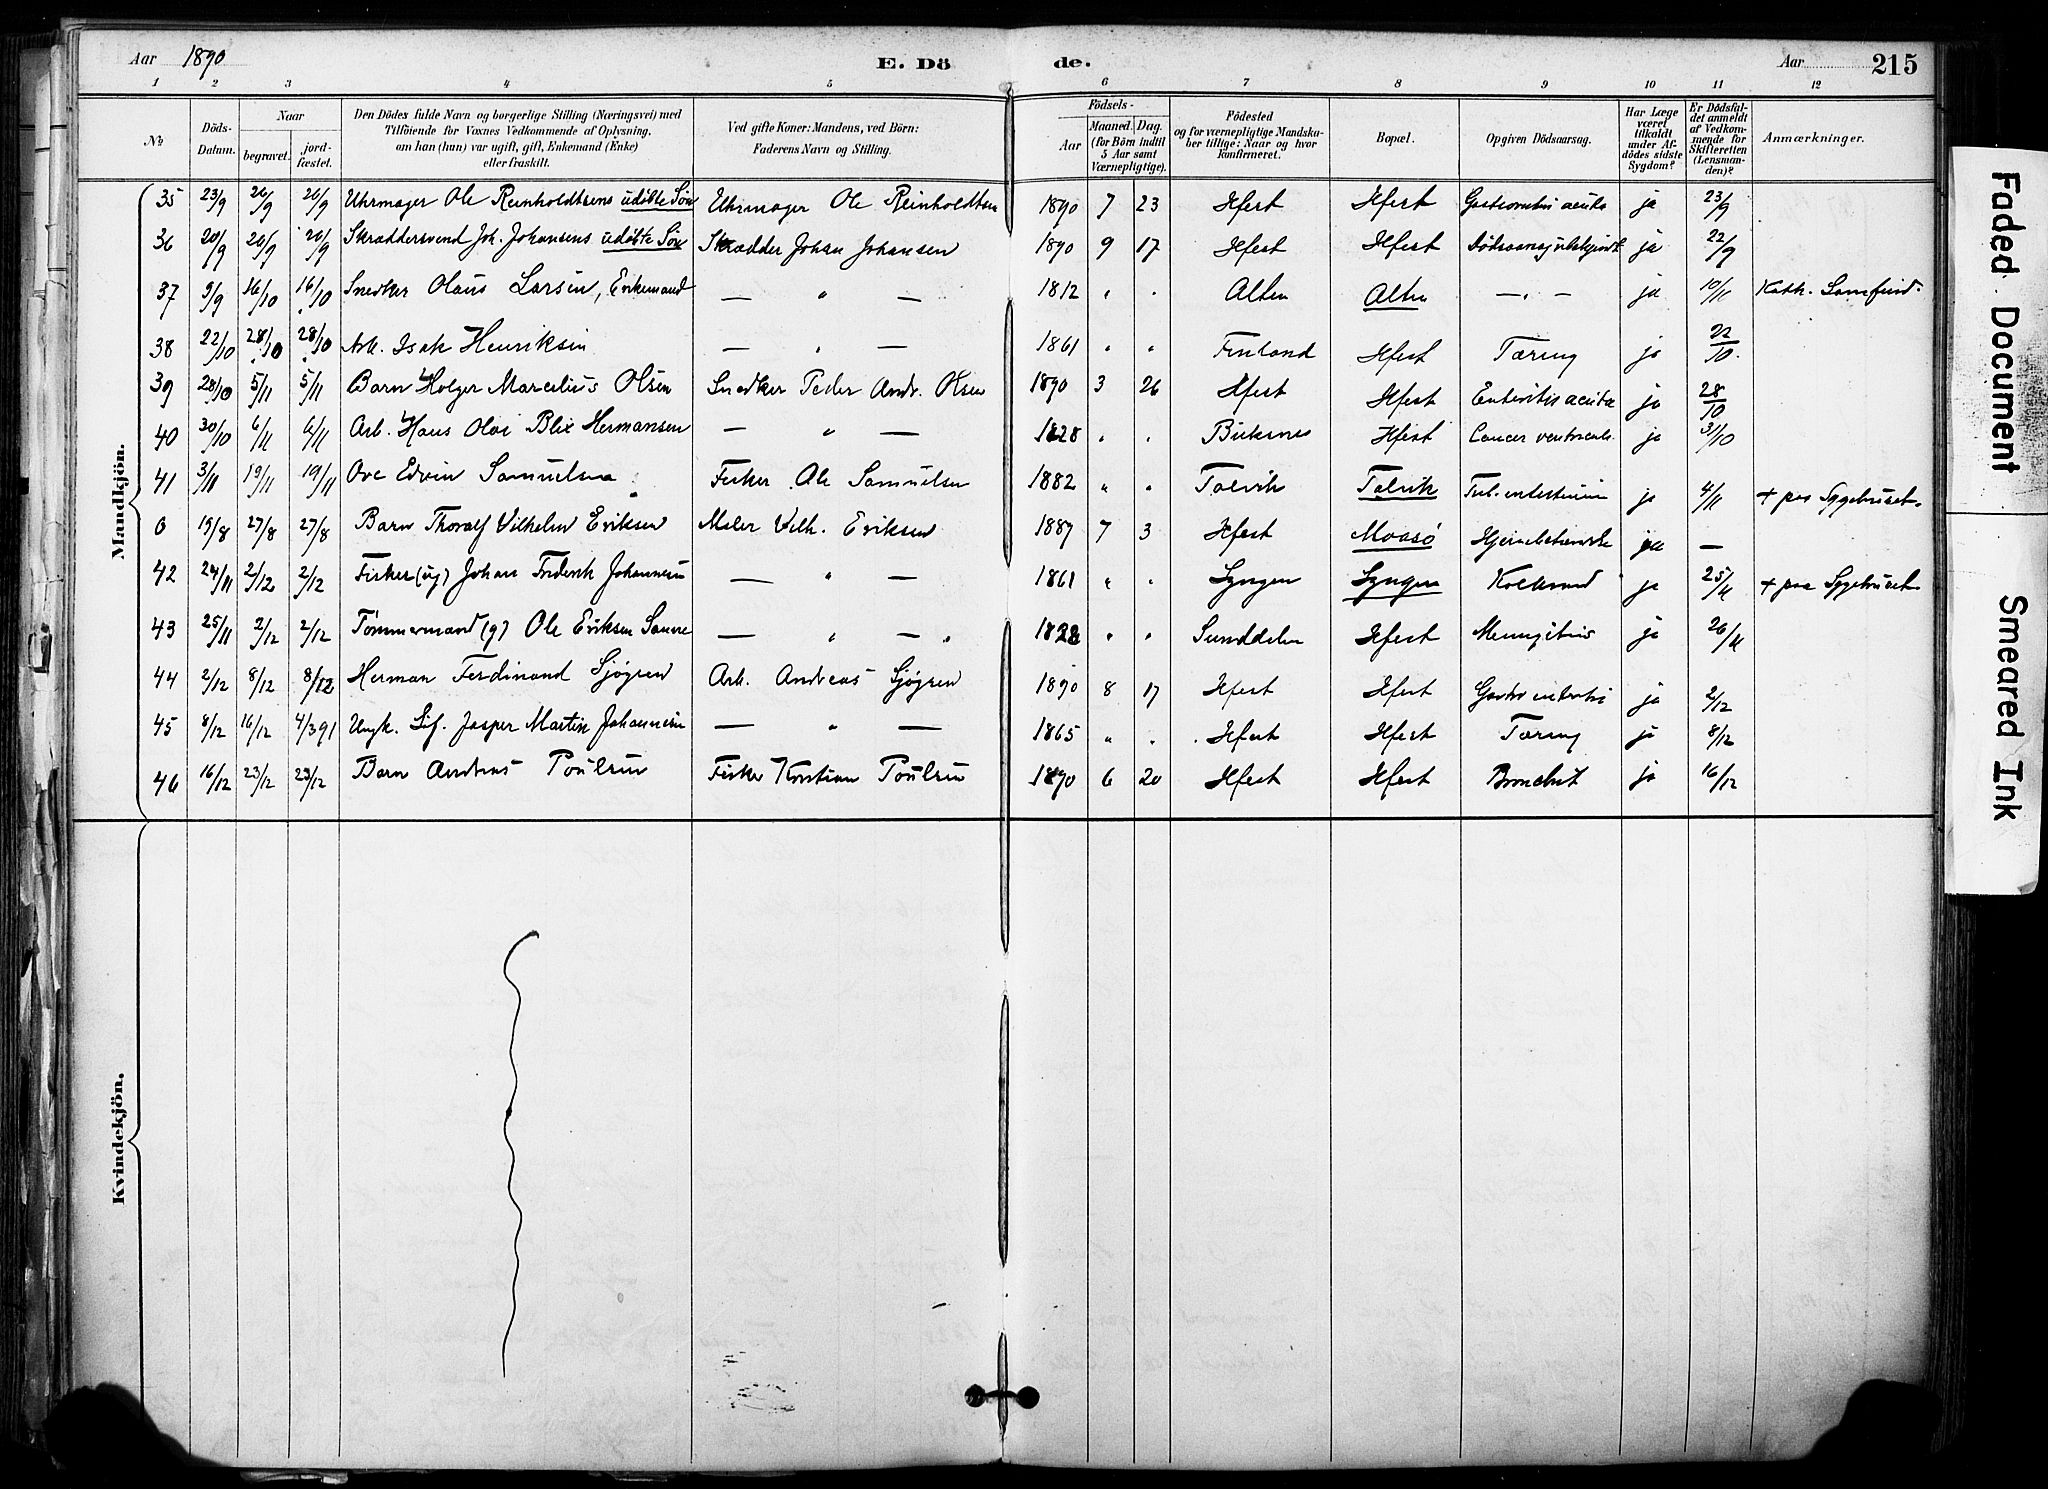 Aar 1890 E. Dö de. Aar 215
1 2 3 4 5 6 7 8 9 10 11 12
No. Döds-Datum. Naar begravet. jordfæstet. Den Dödes fulde Navn og borgerlige Stilling (Næringsvei) med Tilföiende for Voxnes Vedkommende af Oplysning, om han (hun) var ugift, gift, Enkemand (Enke) eller fraskilt. Ved gifte Koner: Mandens, ved Börn: Faderens Navn og Stilling. Födsels- Aar Maaned. Dag. (for Börn indtil 5 Aar samt Værnepligtige). Födested og for værnepligtige Mandskaber tillige: Naar og hvor konfirmeret. Bopæl. Opgiven Dödsaarsag. Har Læge været tilkaldt under Afdödes sidste Sygdom? Er Dödsfaldet anmeldt af Vedkommende for Skifteretten (Lensmanden)? Anmærkninger.
Mandkjön.
35 23/9 26/9 26/9 Uhrmager Ole Reinholdtsens udöbte Sön Uhrmager Ole Reinholdtsen 1890 7 23 Hfest Hfest acuta ja 23/9
36 20/9 26/9 26/9 Skræddersvend Joh. Johansens udöbte Sön Skrædder Johan Johansen 1890 9 17 Hfest Hfest ja 22/9
37 9/9 16/10 16/10 Snedker Olaus Larsen, Enkemand — " — 1812 " " Alten Alten — " — ja 10/11 Kath. Samfund.
38 22/10 28/10 28/10 Arb. Isak Henriksen — " — 1861 " " Finland Hfest Tæring ja 22/10.
39 28/10 5/11 5/11 Barn Holger Marcelius Olsen Snedker Peder Andr. Olsen 1890 3 26 Hfest Hfest Enteritis acuta ja 28/10
40 30/10 6/11 6/11 Arb. Hans Olai Blix Hermansen — " — 1828 " " Buksnes Hfest Cancer ventriculi ja 31/10
41 3/11 19/11 19/11 Ove Edvin Samuelsen Fisker Ole Samuelsen 1882 " " Talvik Talvik ja 4/11 + paa Sygehuset.
0 19/8 27/8 27/8 Barn Thoralf Vilhelm Eriksen Maler Vilh. Eriksen 1887 7 3 Hfest Maasö ja —
42 24/11 2/12 2/12 Fisker (ug) Johan Fredrik Johannesen — " — 1861 " " Lyngen Lyngen Koldbrand ja 25/11 + paa Sygehuset
43 25/11 2/12 2/12 Tömmermand (g) Ole Eriksen — " — " 1828 " " Sunddalen Hfest Meningitis ja 26/11
44 2/12 8/12 8/12 Herman Ferdinand Sjøgren Arb. Andreas Sjøgren 1890 8 17 Hfest Hfest Gastro enteritis ja 2/12
45 8/12 16/12 4/3 91 Ungk. Sif. Jasper Martin Johannesen — " — 1865 " " Hfest Hfest Tæring ja 8/12
46 16/12 23/12 23/12 Barn Andreas Poulsen Fisker Kristian Poulsen 1890 6 20 Hfest Hfest Bronchit ja 16/12
Kvindekjön.
Faded Document
Smeared Ink